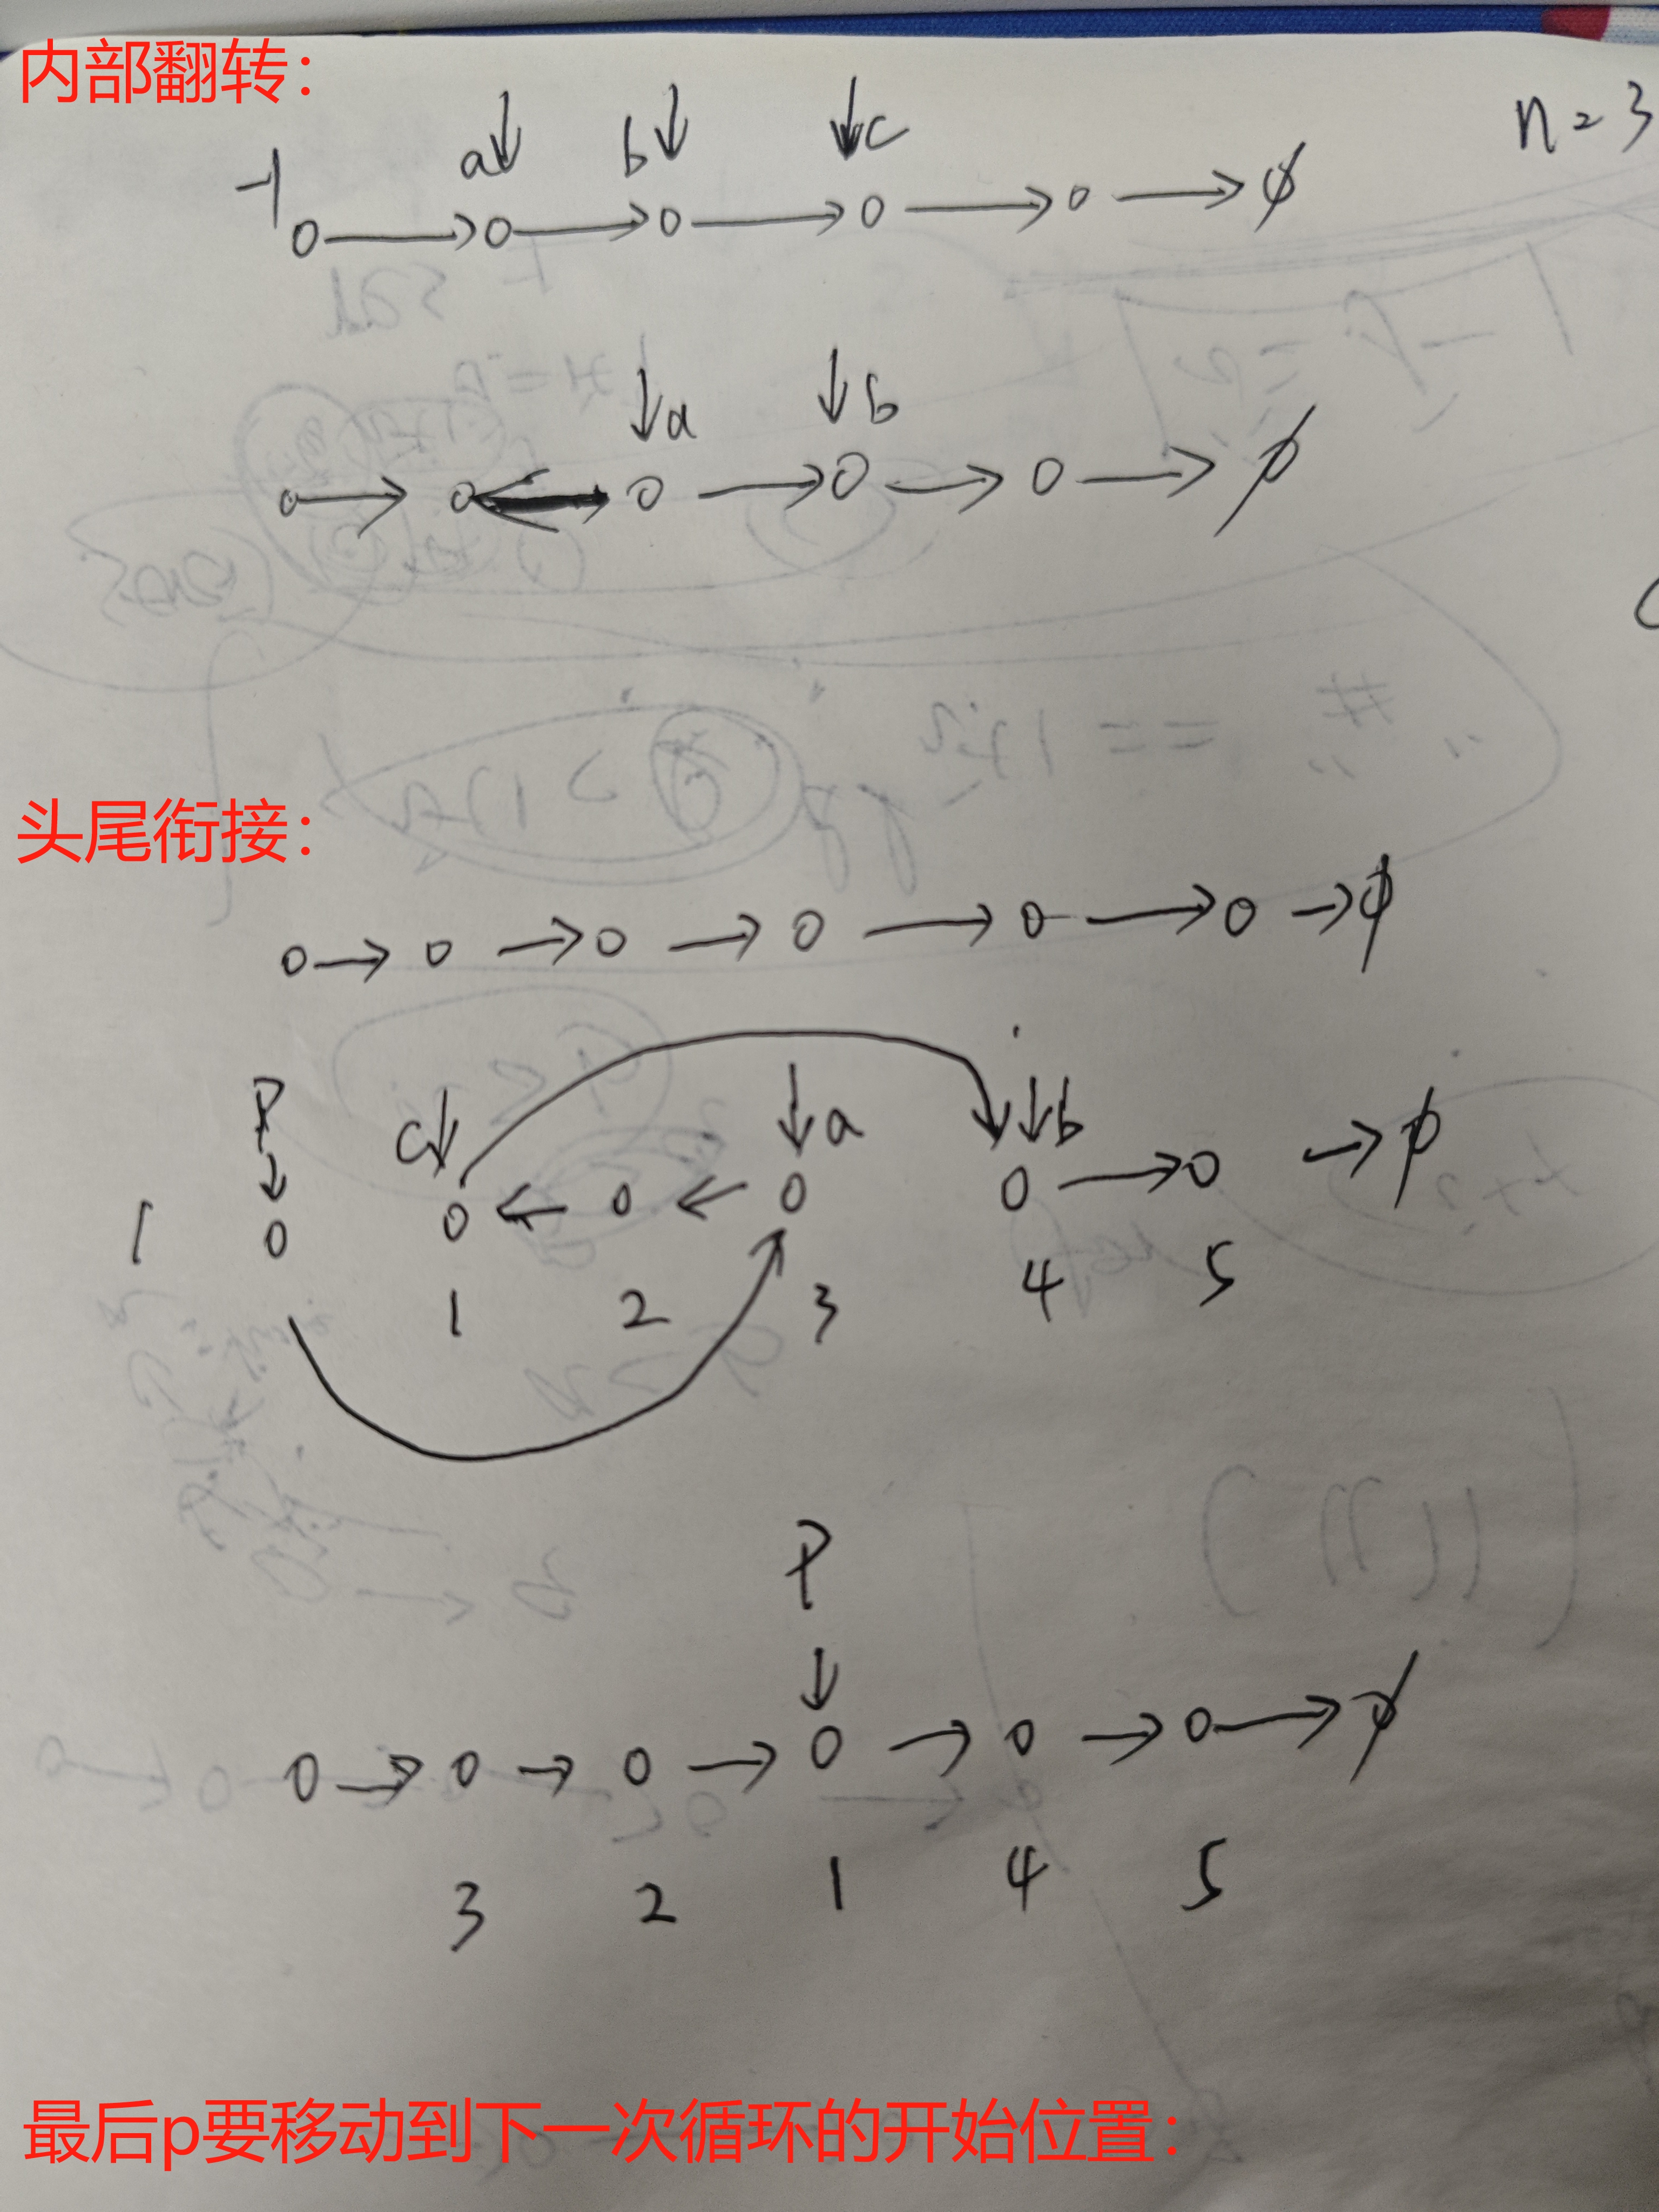 内部翻转：
n = 3
a b c
-1
a b
头尾衔接：
P
c a b
1
1 2 3 4 5
P
3 2 1 4 5
最后p要移动到下一次循环的开始位置：